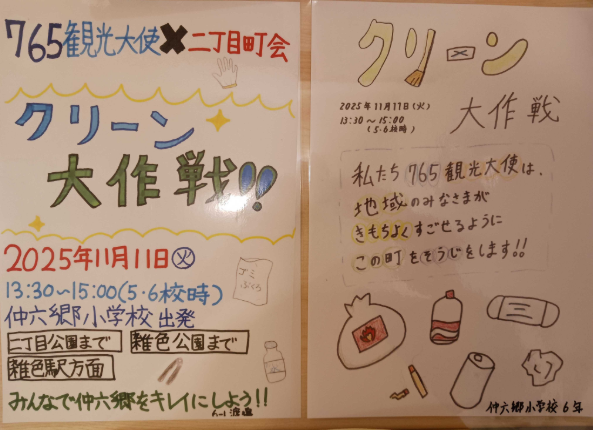 765観光大使✖二丁目町会
クリーン
大作戦!!
2025年11月11日㊋
13:30~15:00(5・6校時)
仲六郷小学校 出発
二丁目公園まで
雑色公園まで
雑色駅方面
ゴミ
ぶくろ
みんなで仲六郷をキレイにしよう!!
クリーン
2025年11月11日(火)
13:30~15:00
(5・6校時)
大作戦
私たち765観光大使は、
地域のみなさまが
きもちよくすごせるように
この町をそうじをします!!
仲六郷小学校 6年